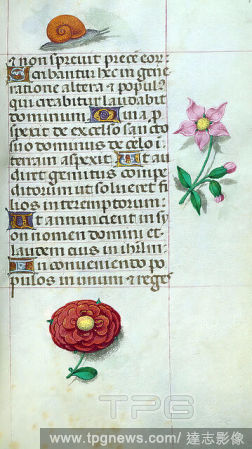 et non sprevit precē eor
Scribantur hec in gene
ratione altera et populꝰ
qui creabitur laudabit
dominum Quia p
spexit de excelso sancto
suo dominus de celo ī
terram aspexit Ut au
diret gemitus compe
ditorum ut solveret fi
lios interemptorum
Ut annuncient in sy
on nomen domini et
laudem eius in ihrlm
In conveniendo po
pulos in unum et reges
TPG
www.tpgnews.com/達志影像